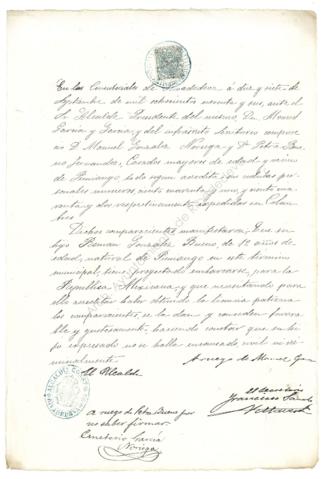 En las Consistoriales de á diez y siete de
Septiembre de mil ochocientos noventa y seis, ante el
Sr. Alcalde Presidente del mismo, Dn Manuel
García y García, y del infrascrito Secretario compare
D. Manuel González Noriega y Dª Petra Bue
no Fernandez, Casados mayores de edad y vecinos
de Pimiango todo segun acredita con cedulas per
sonales numeros ciento cuarenta y uno y ciento cua
renta y dos respectivamente, expedidas en Colom
bres
Dichos comparecientes manifestaron: Que su
hijo Roman González Bueno, de 12 años de
edad, natural de Pimiango en este término
municipal, tiene proyectado embarcarse, para la
República Mexicana, y que necesitando para
ello acreditar haber obtenido la licencia paterna
los comparecientes, se la dan y conceden favora
ble y gustosamente, haciendo constar que su hi
jo expresado no se halla encausado civil ni cri
minalmente.
Aruego de Manuel
El Alcalde
El Secretario
Francisco
a ruego de Petra Bueno por
no saber firmar
García
Noriega